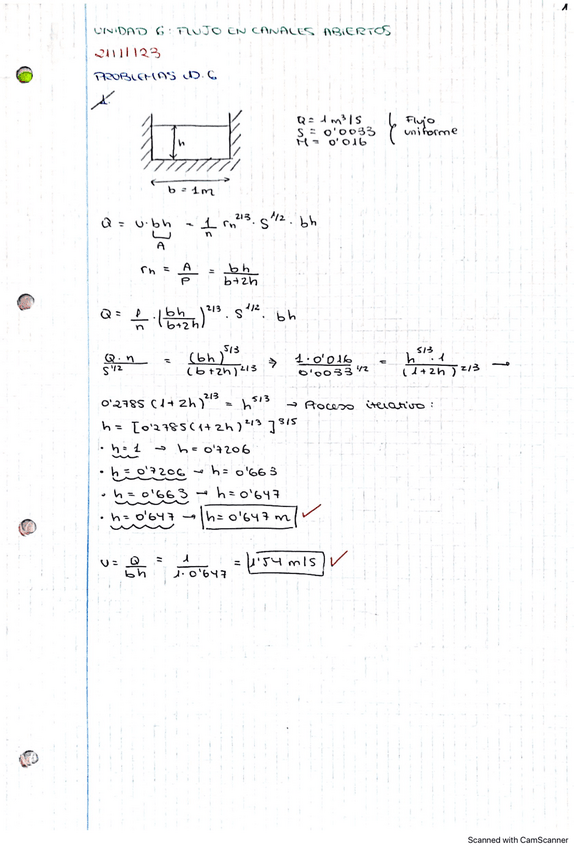 1
UNIDAD 6: FLUJO EN CANALES ABIERTOS
21/11/23
PROBLEMAS UD. 6
1.
h
b = 1m
Q = 1 m³/s
S = 0'0033
n = 0'016
Flujo uniforme
Q = v·bh = 1/n rh^2/3 · S^1/2 · bh
A
rh = A/P = bh/b+2h
Q = 1/n · (bh/b+2h)^2/3 · S^1/2 · bh
Q·n/S^1/2 = (bh)^5/3/(b+2h)^2/3 ⇒ 1·0'016/0'0033^1/2 = h^5/3·1/(1+2h)^2/3 →
0'2785 (1+2h)^2/3 = h^5/3 → Proceso iterativo:
h = [0'2785(1+2h)^2/3]^3/5
· h = 1 → h = 0'7206
· h = 0'7206 → h = 0'663
· h = 0'663 → h = 0'647
· h = 0'647 → h = 0'647 m ✓
v = Q/bh = 1/1·0'647 = 1'54 m/s ✓
Scanned with CamScanner